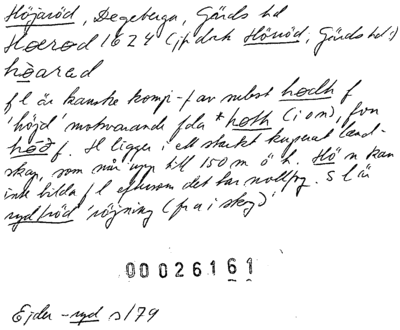 Höjaröd, Degeberga, Gärds hd
Horod 1624 (jfr dock Hönröd, Gärds hd!)
höarad
f l är kanske komp-f av subst hödh f
'höjd' motsvarande fda *høth (i om), fvn
hæð f. H ligger i ett starkt kuperat land-
skap, som når upp till 150 m ö h. Hö n kan
inte bilda f l eftersom det har nollfog. S l är
ryd/röd 'röjning (fr a i skog)'
00026161
Ejder -ryd s/79